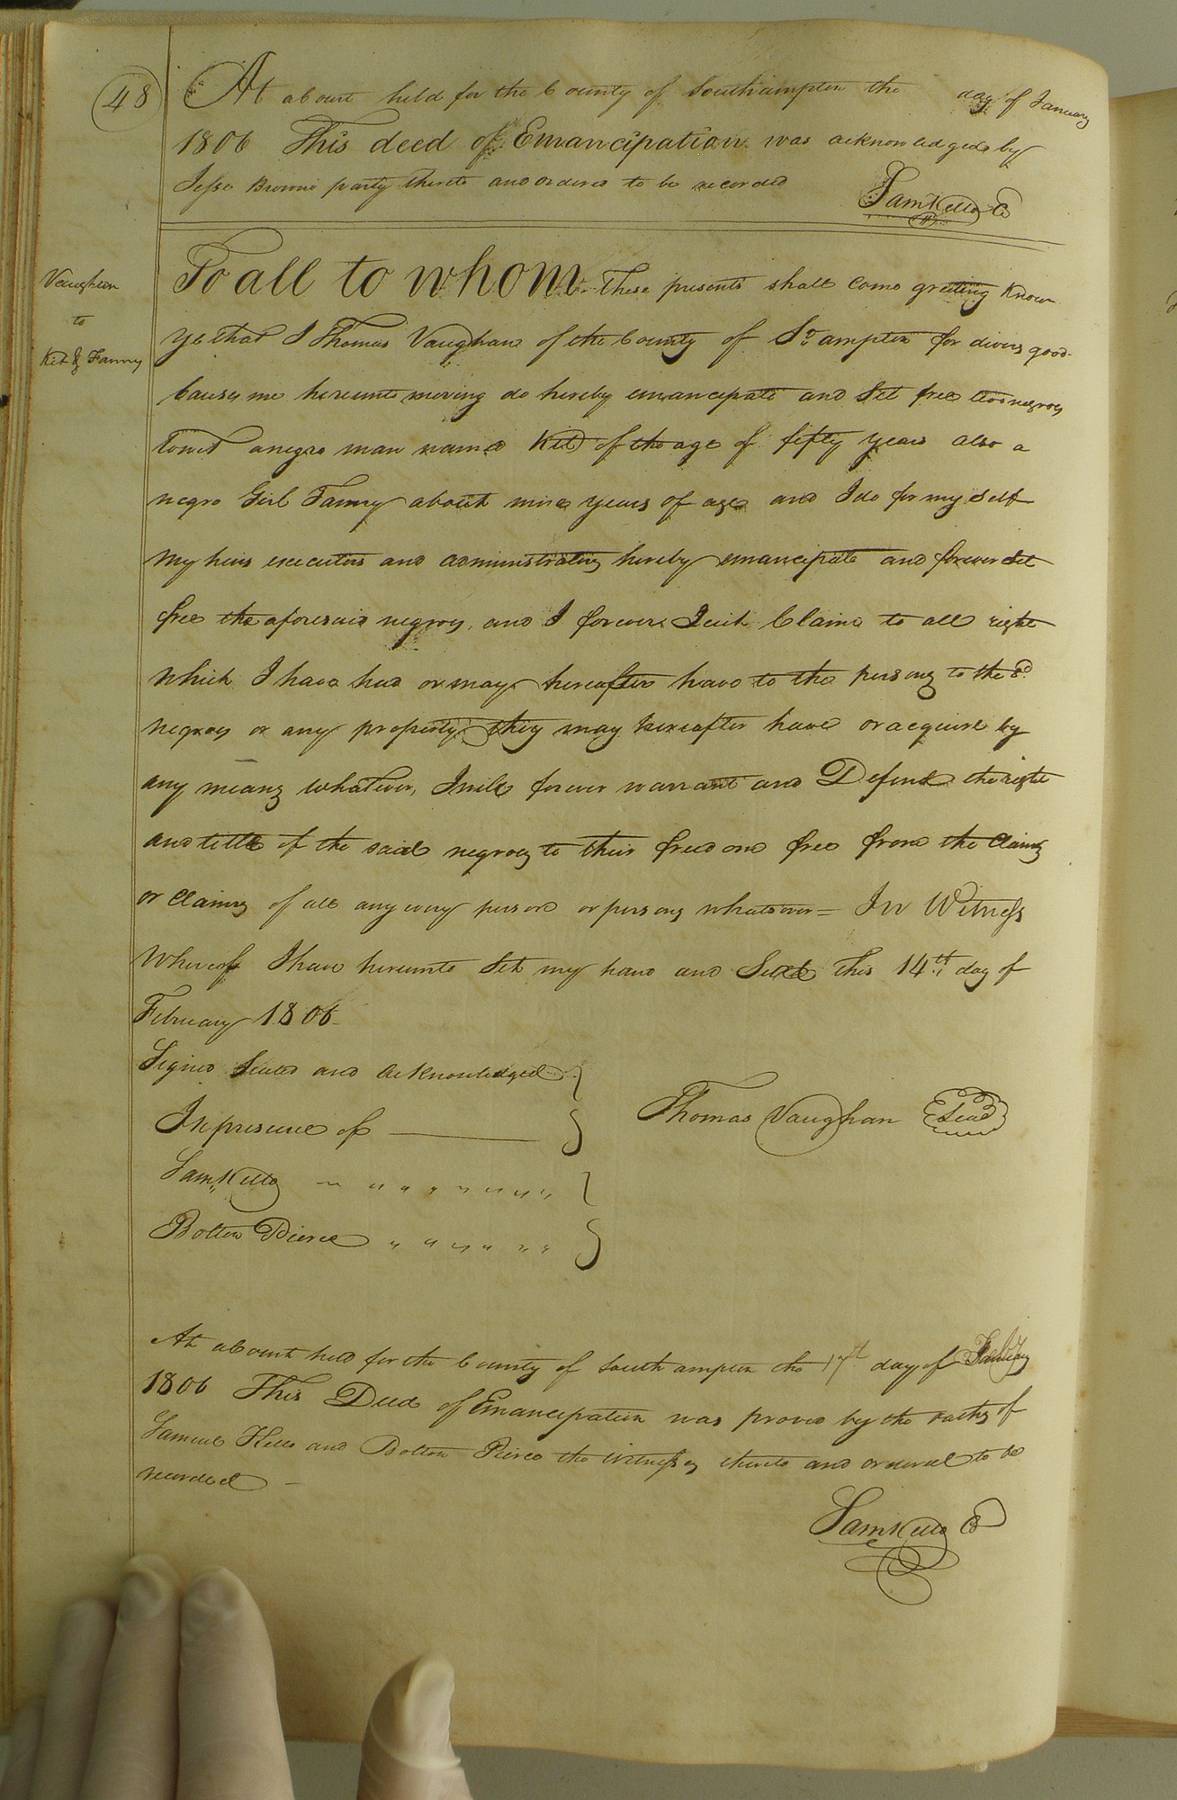 48
At a Court held for the County of Southampton the day of January
1806 This deed of Emancipation was acknowledged by
Jesse Browne party thereto and ordered to be recorded
Sam Kello C
Vaughan
to
Kit & Fanny
To all to whom These presents shall come greeting Know
ye that I Thomas Vaughan of the County of So.ampton for divers good
Causes me hereunto moving do hereby emancipate and Set free two negroes
to wit a negro man named Kitt of the age of fifty years also a
negro Girl Fanny about nine years of age and I do for my self
my heirs executors and administrators hereby emancipate and forever Set
free the aforesaid negroes, and I forever Quit Claim to all right
which I have had or may hereafter have to the persons to the sd
negroes or any property they may hereafter have or acquire by
any means whatever, I will forever warrant and Defend the right
and title of the said negroes to their freedom free from the Claims
or Claims of all any every person or persons whatsoever = In Witness
Whereof I have hereunto Set my hand and Seal this 14th day of
February 1806
Signed Sealed and Acknowledged
In presence of
Thomas Vaughan Seal
Sam Kello
Bolton Pierce
At a Court held for the County of Southampton the 17th day of
1806 This Deed of Emancipation was proved by the oaths of
Samuel Kello and Bolton Pierce the witnesses thereto and ordered to be
recorded
Sam Kello C